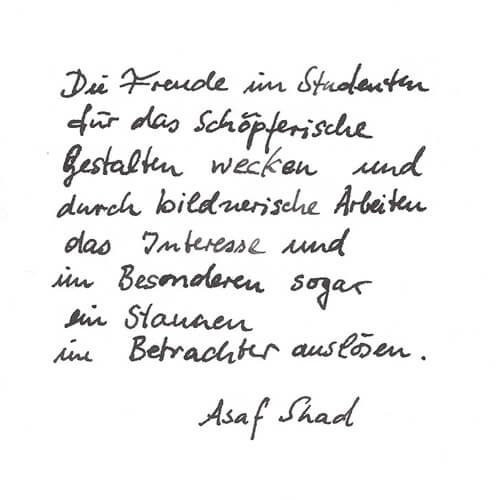 Die Freude im Studenten
für das Schöpferische
Gestalten wecken und
durch bildnerische Arbeiten
das Interesse und
im Besonderen sogar
ein Staunen
im Betrachter auslösen.
Asaf Shad